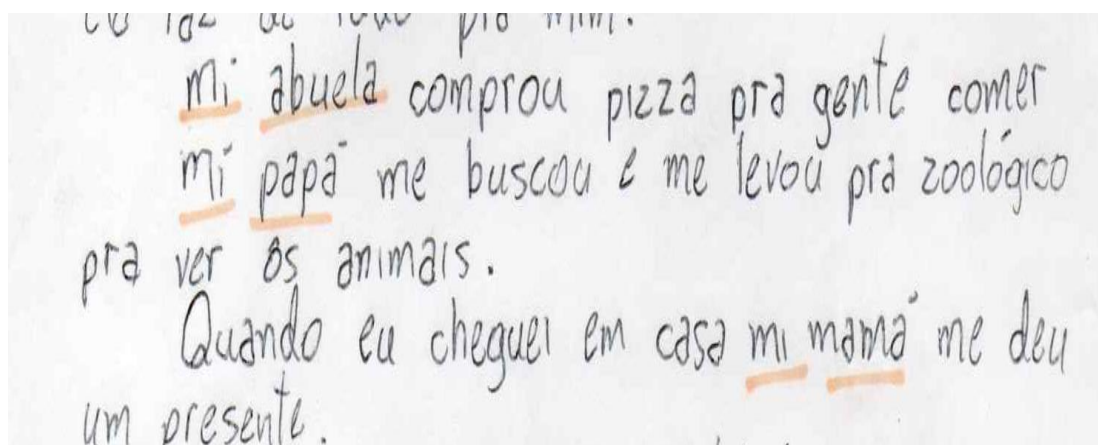 faz de tudo pra mim.
mi abuela comprou pizza pra gente comer
mi papá me buscou e me levou pra zoológico
pra ver os animais.
Quando eu cheguei em casa mi mamá me deu
um presente.